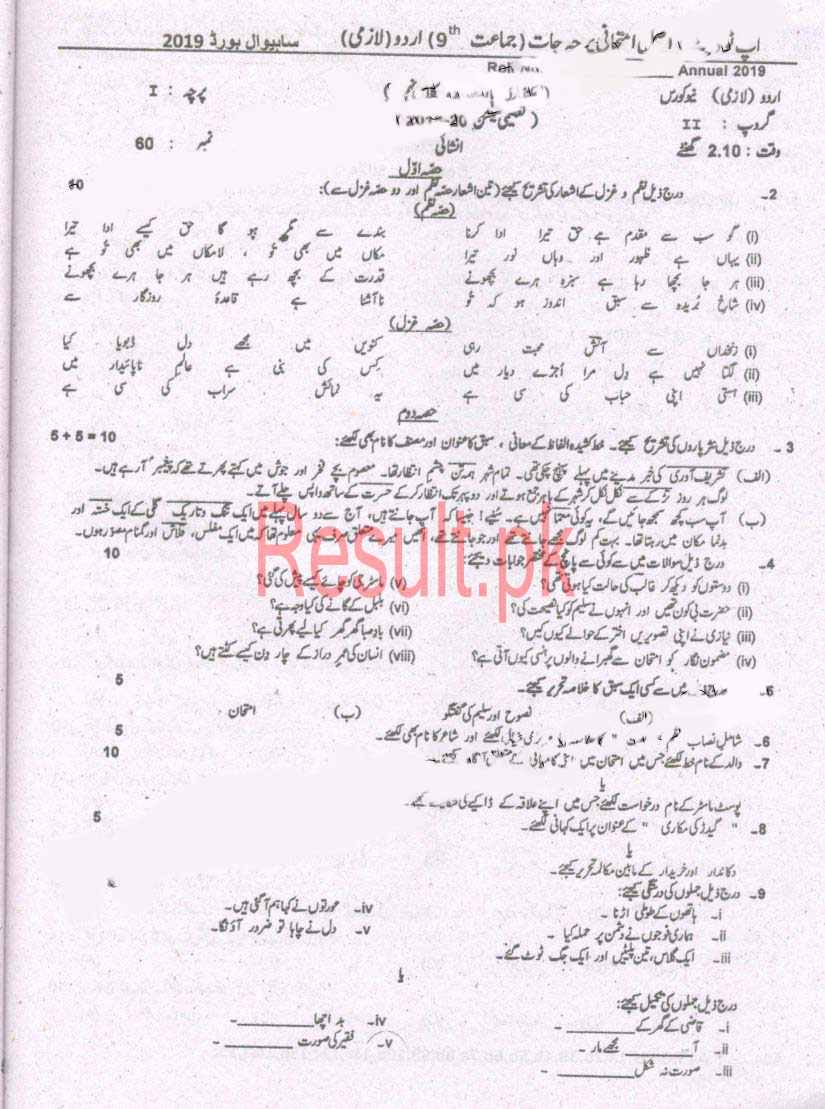 اپ امتحانی پرچہ جات (جماعت 9th) اردو (لازمی) ساہیوال بورڈ 2019
Annual 2019
اردو (لازمی) نیوکورس پرچہ : I
گروپ : II
وقت : 2.10 گھنٹے انشائی نمبر : 60
حصہ اوّل
2۔ درج ذیل نظم و غزل کے اشعار کی تشریح کیجئے (تین اشعار حصہ نظم اور دو حصہ غزل سے): 10
(حصہ نظم)
(i) گو سب سے مقدم ہے حق تیرا ادا کرنا بندے سے مگر ہو گا حق کیسے ادا تیرا
(ii) یہاں ہے ظہور اور وہاں نور تیرا مکاں میں بھی تو ، لامکاں میں بھی تو ہے
(iii) ہر جا بچھا رہا ہے سبزہ ہرے بچھونے قدرت کے بچھ رہے ہیں ہر جا ہرے بچھونے
(iv) شاخ بُریدہ سے سبق اندوز ہو کہ تو ناآشنا ہے قاعدۂ روزگار سے
(حصہ غزل)
(i) زنخداں سے آتش محبت رہی کنویں میں مجھے دل ڈبویا کیا
(ii) لگتا نہیں ہے دل مرا اُجڑے دیار میں کِس کی بنی ہے عالمِ ناپائیدار میں
(iii) ہستی اپنی حباب کی سی ہے یہ نمائش سراب کی سی ہے
حصہ دوم
3۔ درج ذیل نثر پاروں کی تشریح کیجئے۔ خط کشیدہ الفاظ کے معانی ، سبق کا عنوان اور مصنف کا نام بھی لکھئے: 5 + 5 = 10
(الف) تشریف آوری کی خبر مدینے میں پہلے پہنچ چکی تھی۔ تمام شہر ہمہ تن چشمِ انتظار تھا۔ معصوم بچے فخر اور جوش میں کہتے پھرتے تھے کہ پیغمبر آ رہے ہیں۔
لوگ ہر روز تڑکے سے نکل نکل کر شہر کے باہر جمع ہوتے اور دوپہر تک انتظار کر کے حسرت کے ساتھ واپس چلے آتے۔
(ب) آپ سب کچھ سمجھ جائیں گے، یہ کوئی معمّا نہیں ہے۔ سنیے! جیسا کہ آپ جانتے ہیں، آج سے دو سال پہلے میں ایک تنگ و تاریک گلی کے ایک خستہ اور
بدنما مکان میں رہتا تھا۔ بہت کم لوگ مجھے جانتے تھے اور جو جانتے تھے، انھیں میرے متعلق صرف یہی معلوم تھا کہ میں ایک مفلس، قلاش اور گمنام مصوّر ہوں۔
4۔ درج ذیل سوالات میں سے کوئی سے پانچ کے مختصر جوابات دیجئے: 10
(i) دوستوں کو دیکھ کر غالب کی حالت کیا ہوتی تھی؟ (v) ماسٹر جی کو چائے کیسے پیش کی گئی؟
(ii) حضرت بی کون تھیں اور انہوں نے سلیم کو کیا نصیحت کی؟ (vi) بلبل کے گانے کی کیا وجہ ہے؟
(iii) نیازی نے اپنی تصویریں اختر کے حوالے کیوں کیں؟ (vii) بادِ صبا گھر گھر کیا لیے پھرتی ہے؟
(iv) مضمون نگار کو امتحان سے گھبرانے والوں پر ہنسی کیوں آتی ہے؟ (viii) انسان کی عمرِ دراز کے چار دن کیسے کٹتے ہیں؟
5۔ میں سے کسی ایک سبق کا خلاصہ تحریر کیجئے۔ 5
(الف) نصوح اور سلیم کی گفتگو (ب) امتحان
6۔ شاملِ نصاب نظم لکھئے اور شاعر کا نام بھی لکھئے۔ 5
7۔ والد کے نام خط لکھئے جس میں امتحان میں کامیابی کے 10
یا
پوسٹ ماسٹر کے نام درخواست لکھئے جس میں اپنے علاقہ کے ڈاکیے کی
8۔ " گیدڑ کی مکاری " کے عنوان پر ایک کہانی لکھئے۔ 5
یا
دکاندار اور خریدار کے مابین مکالمہ تحریر کیجئے۔
9۔ درج ذیل جملوں کی درستگی کیجئے:
i۔ ہاتھوں کے طوطی اڑنا ۔ iv۔ عورتوں نے کہا ہم آ گئی ہیں۔
ii۔ ہماری فوجوں نے دشمن پر حملہ کیا ۔ v۔ دل نے چاہا تو ضرور آؤنگا۔
iii۔ ایک گلاس، تین پلیٹیں اور ایک جگ ٹوٹ گئے۔
یا
درج ذیل جملوں کی تکمیل کیجئے:
i۔ قاضی کے گھر کے ________ ۔ iv۔ بد اچھا ________ ۔
ii۔ آ ________ مجھے مار v۔ فقیر کی صورت ________ ۔
iii۔ صورت نہ شکل ________ ۔
Result.pk